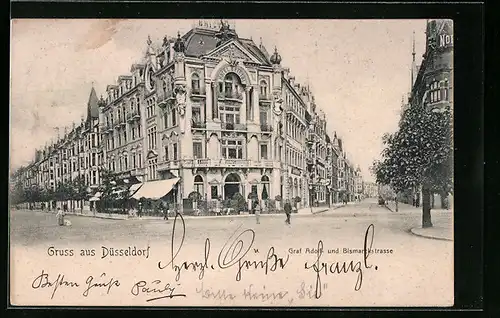 Gruss aus Düsseldorf
Graf Adolf- und Bismarckstrasse
Herzl. Grüße Franzl.
Besten Gruß Pauly